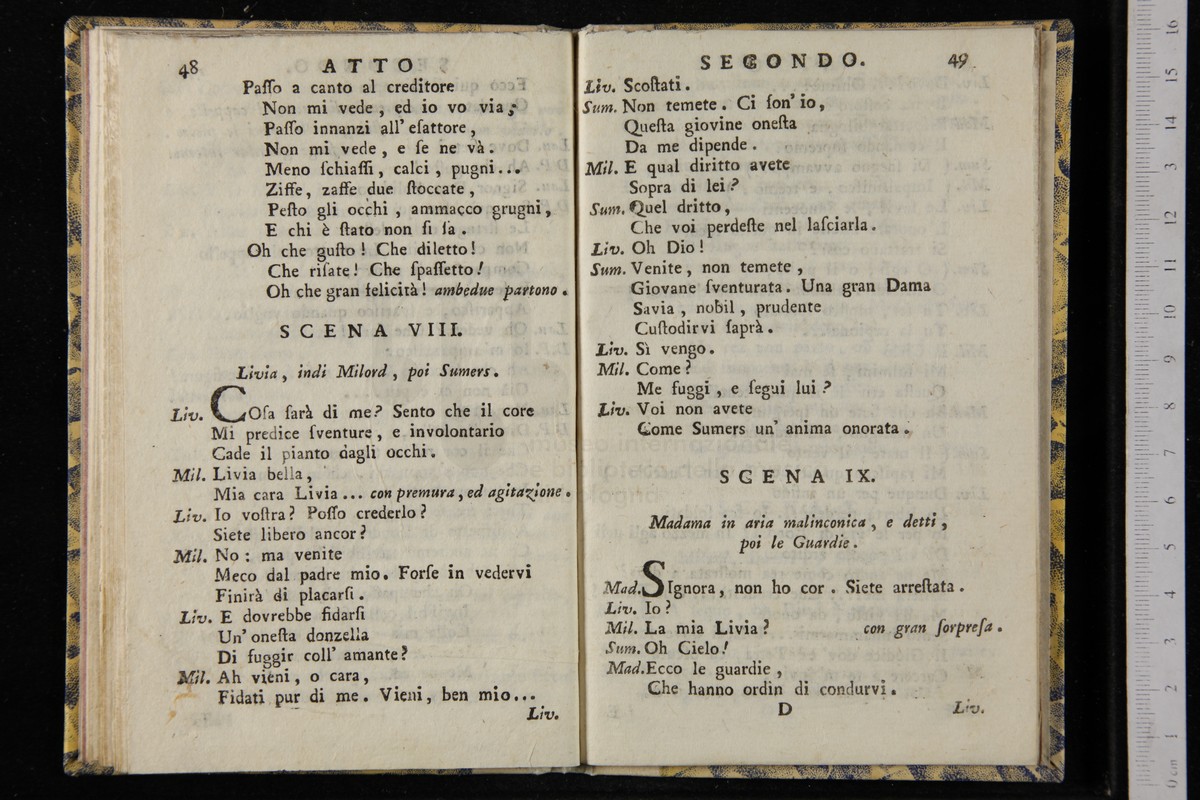 48 ATTO
Paſſo a canto al creditore
Non mi vede, ed io vo via;
Paſſo innanzi all' eſattore,
Non mi vede, e ſe ne và.
Meno ſchiaffi, calci, pugni...
Ziffe, zaffe due ſtoccate,
Peſto gli occhi, ammacco grugni,
E chi è ſtato non ſi ſa.
Oh che guſto! Che diletto!
Che riſate! Che ſpaſſetto!
Oh che gran felicità! ambedue partono.
SCENA VIII.
Livia, indi Milord, poi Sumers.
Liv. COſa ſarà di me? Sento che il core
Mi predice ſventure, e involontario
Cade il pianto dagli occhi.
Mil. Livia bella,
Mia cara Livia... con premura, ed agitazione.
Liv. Io voſtra? Poſſo crederlo?
Siete libero ancor?
Mil. No: ma venite
Meco dal padre mio. Forſe in vedervi
Finirà di placarſi.
Liv. E dovrebbe fidarſi
Un' oneſta donzella
Di fuggir coll' amante?
Mil. Ah vieni, o cara,
Fidati pur di me. Vieni, ben mio...
Liv.
SECONDO. 49
Liv. Scoſtati.
Sum. Non temete. Ci ſon' io,
Queſta giovine oneſta
Da me dipende.
Mil. E qual diritto avete
Sopra di lei?
Sum. Quel dritto,
Che voi perdeſte nel laſciarla.
Liv. Oh Dio!
Sum. Venite, non temete,
Giovane ſventurata. Una gran Dama
Savia, nobil, prudente
Cuſtodirvi ſaprà.
Liv. Sì vengo.
Mil. Come?
Me fuggi, e ſegui lui?
Liv. Voi non avete
Come Sumers un' anima onorata.
SCENA IX.
Madama in aria malinconica, e detti,
poi le Guardie.
Mad. SIgnora, non ho cor. Siete arreſtata.
Liv. Io?
Mil. La mia Livia? con gran ſorpreſa.
Sum. Oh Cielo!
Mad. Ecco le guardie,
Che hanno ordin di condurvi.
D Liv.